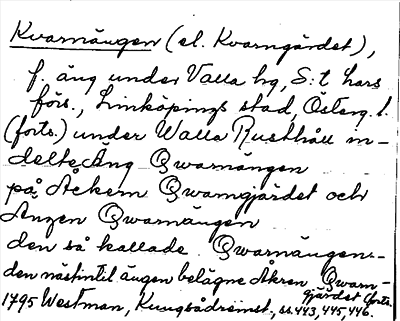 Kvarnängen (el. Kvarngärdet),
f. äng under Valla hg, S:t Lars
förs., Linköpings stad, Österg. l.
(forts.) under Walla Rusthåll in-
delte Äng Qwarnängen
på Åckern Qwarngjärdet och
Ängen Qwarnängen
den så kallade Qwarnängen.-
den nästintil ängen belägne Åkren Qwarn-
gjärdet (forts.
1795 Westman, Kungsådremst., ss. 443, 445, 446.